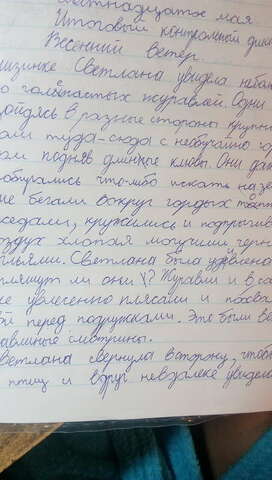 надцатое мая
Итоговый контрольный дик
Весенний ветер.
низинке Светлана увидела небол
о голенастых журавлей. Одни
ойдясь в разные стороны крупны
али туда-сюда с необычно
ом подняв длинные клювы. Они да
собирались что-либо искать на зе
ие бегали вокруг гордых
седами, кружились и подпрыгив
оздух хлопая могучими черн
льями. Светлана была удивлена
пляшут ли они? Журавли и в са
ке увлечённо плясали и
ой перед подружками. Это были ве
равлиные смотрины.
ветлана свернула в сторону, чтобы
птиц и вдруг невдалеке увидела